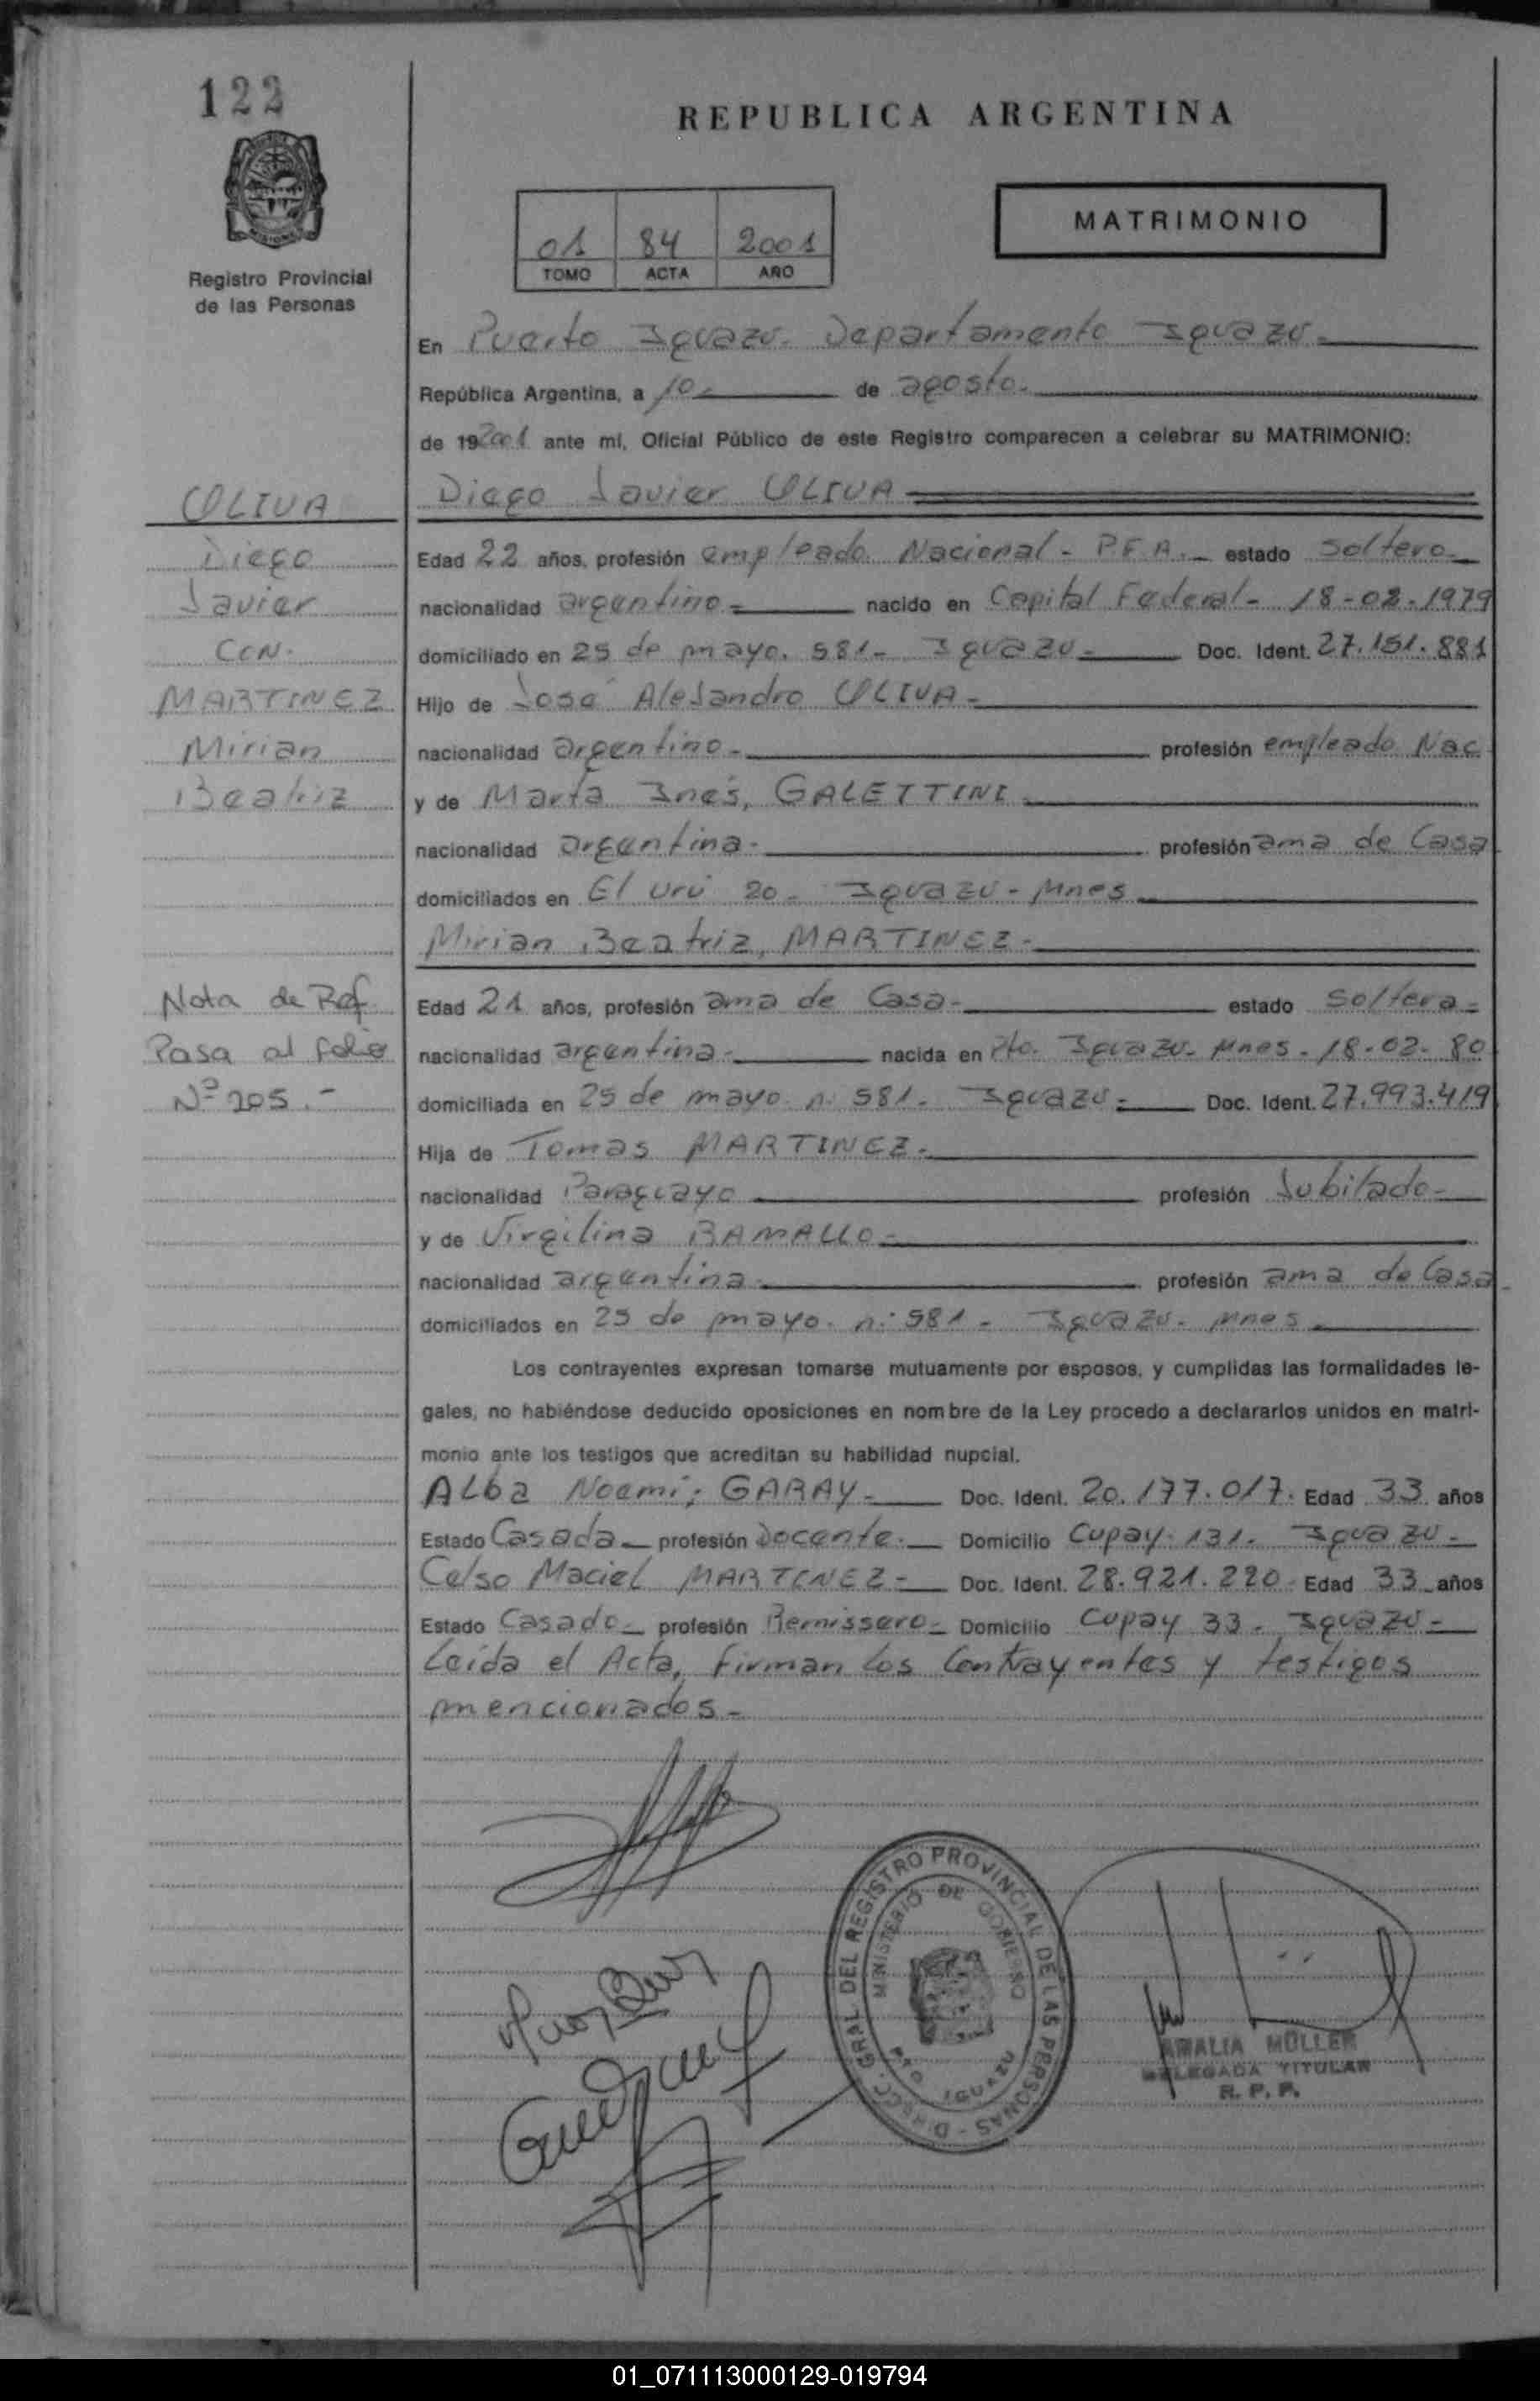 122
REPUBLICA ARGENTINA
MATRIMONIO
01 84 2001
TOMO ACTA AÑO
Registro Provincial
de las Personas
En Puerto Iguazu. Departamento Iguazu.
República Argentina, a 10. de agosto.
de 192001 ante mí, Oficial Público de este Registro comparecen a celebrar su MATRIMONIO:
OLIVA
Diego Javier OLIVA
Diego
Edad 22 años, profesión empleado Nacional - P.F.A. estado soltero
Javier
nacionalidad argentino nacido en Capital Federal - 18-02-1979
CON.
domiciliado en 25 de mayo. 581- Iguazu- Doc. Ident. 27.151.881
MARTINEZ
Hijo de José Alejandro OLIVA-
Mirian
nacionalidad argentino- profesión empleado Nac
Beatriz
y de Marta Inés, GALETTINI
nacionalidad argentina- profesión ama de Casa
domiciliados en El Urú 20 - Iguazu - Mnes
Mirian Beatriz, MARTINEZ-
Nota de Ref.
Edad 21 años, profesión ama de Casa- estado soltera-
Pasa al folio
nacionalidad argentina- nacida en Pto. Iguazu- Mnes- 18-02-80
Nº 205.-
domiciliada en 25 de mayo n: 581. Iguazu- Doc. Ident. 27.993.419
Hija de Tomas MARTINEZ-
nacionalidad Paraguayo profesión Jubilado-
y de Virgilina RAMALLO-
nacionalidad argentina- profesión ama de Casa
domiciliados en 25 de mayo. n: 581 - Iguazu- Mnes
Los contrayentes expresan tomarse mutuamente por esposos, y cumplidas las formalidades le-
gales, no habiéndose deducido oposiciones en nombre de la Ley procedo a declararlos unidos en matri-
monio ante los testigos que acreditan su habilidad nupcial.
Alba Noemi; GARAY- Doc. Ident. 20.177.017. Edad 33 años
Estado Casada- profesión Docente. Domicilio Cupay 131. Iguazu-
Celso Maciel MARTINEZ- Doc. Ident. 28.921.220 Edad 33 años
Estado Casado- profesión Remissero- Domicilio Cupay 33 - Iguazu-
Leída el Acta, firman los Contrayentes y testigos
mencionados-
DIRECC. GRAL DEL REGISTRO PROVINCIAL DE LAS PERSONAS
MINISTERIO DE GOBIERNO
PTO IGUAZU
AMALIA MÜLLER
DELEGADA TITULAR
R. P. P.
01_071113000129-019794